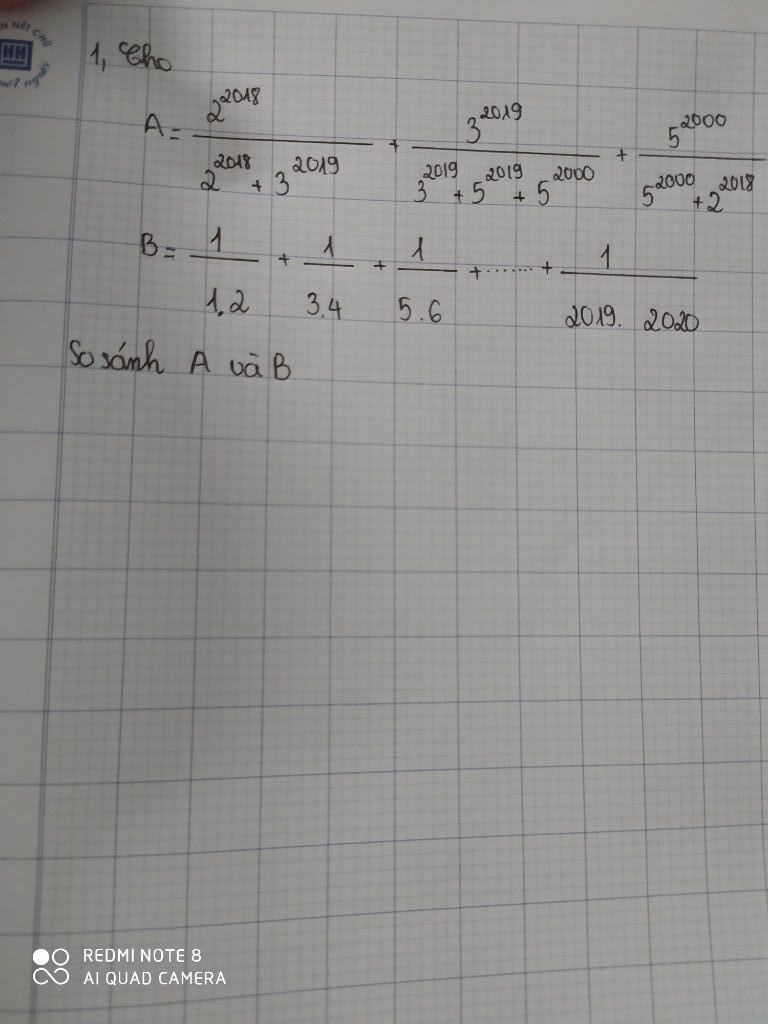 1, Cho
A = 2^2018 / (2^2018 + 3^2019) + 3^2019 / (3^2019 + 5^2019 + 5^2000) + 5^2000 / (5^2000 + 2^2018)
B = 1 / 1.2 + 1 / 3.4 + 1 / 5.6 + ........ + 1 / 2019. 2020
So sánh A và B
HH
REDMI NOTE 8
AI QUAD CAMERA